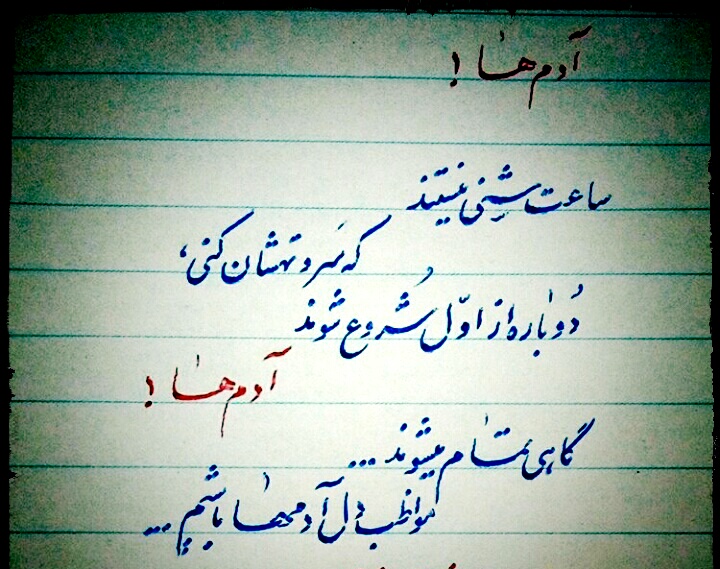 آدم‌ها !
ساعت شِنی نیستند
که سَر و تهشان کنی،
دُوباره از اوّل شُروع شوند
آدم‌ها !
گاهی تمام میشوند...
مواظب دل آدمها باشیم...